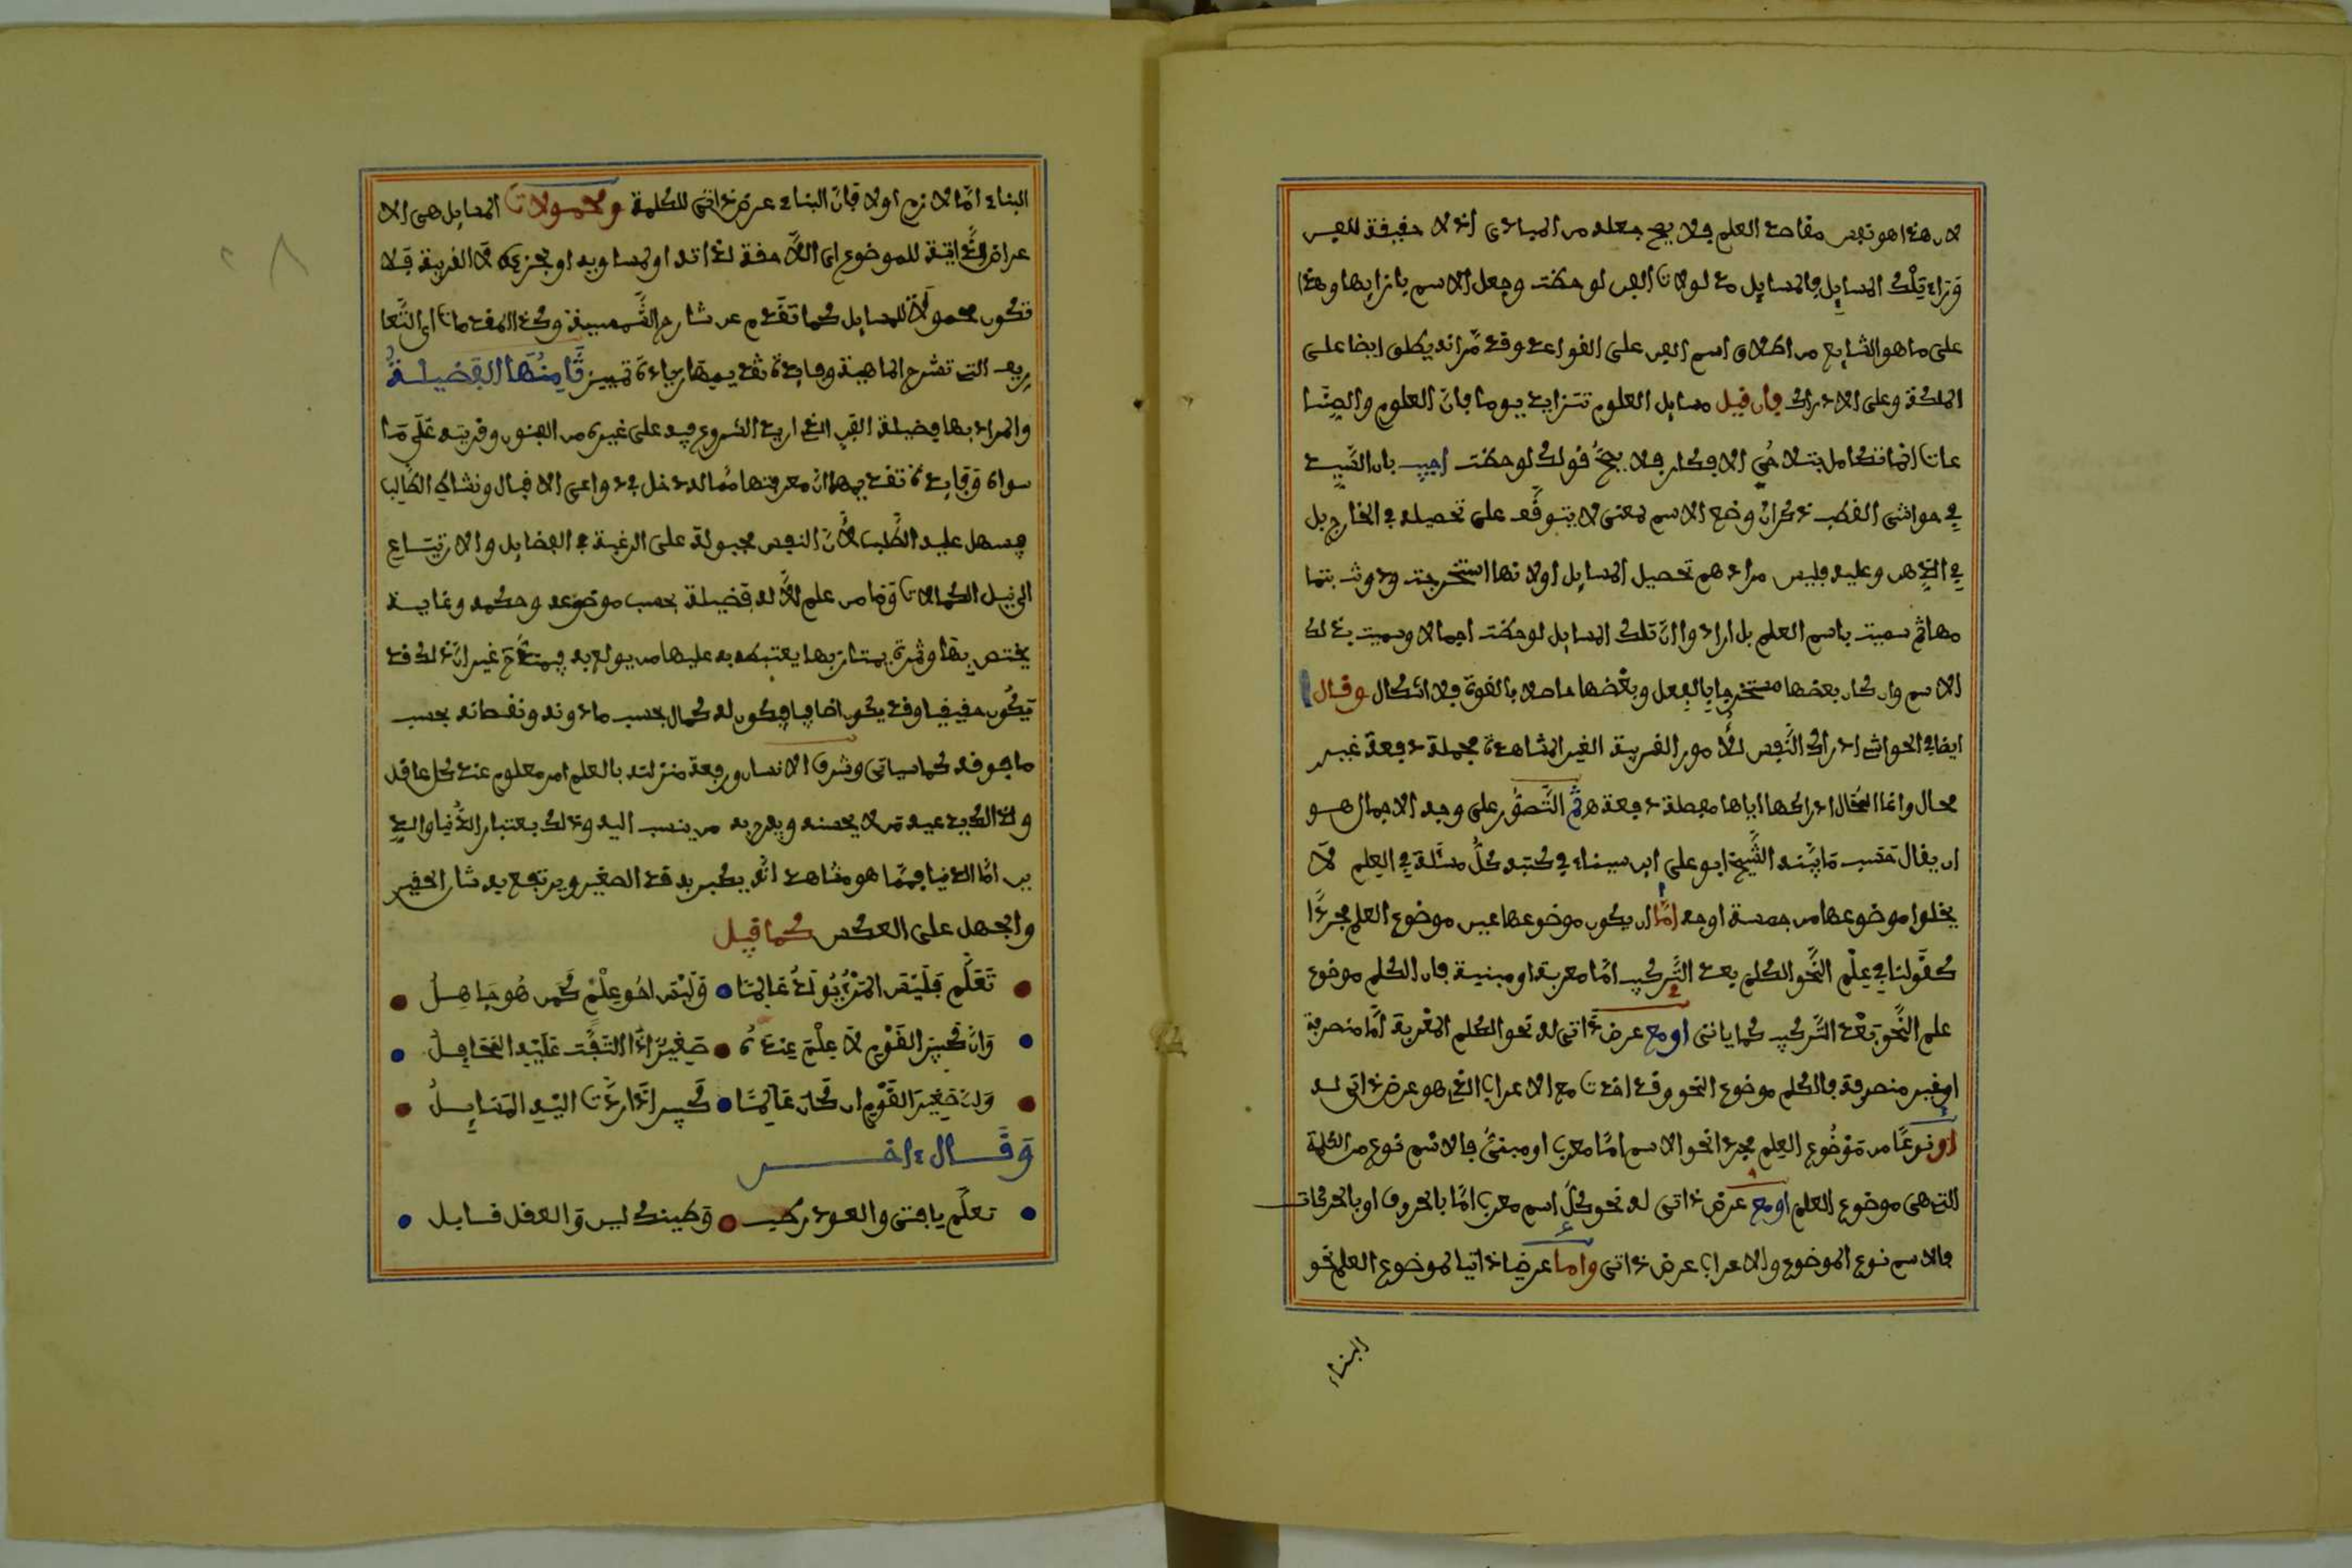 لان هذا هو نفس مقاصد العلم فلا يصح جعله من المبادي اذ لا حقيقة للفن
وراء تلك المسايل فالمسايل مدلولات الفن لوحظت وجعل الاسم بازايها وهذا
على ما هو الشايع من اطلاق اسم الفن على القواعد وقد مر انه يطلق ايضا على
الملكة وعلى الادراك فان قيل مسايل العلوم تتزايد يوما فان العلوم والصنا
عات انما تتكامل بتلاحق الافكار فلا يصح قولك لوحظت اجيب بان السيد
في حواشى القطب ذكر ان وضع الاسم لمعنى لا يتوقف على تحصيله في الخارج بل
في الذهن وعليه فليس مرادهم تحصيل المسايل اولا انها استخرجت ودونت بتما
مها ثم سميت باسم العلم بل ارادوا ان تلك المسايل لوحظت اجمالا وسميت بذلك
الاسم وان كان بعضها مستخرجا بالفعل وبعضها حاصلا بالقوة فلا اشكال وقال
ايضا في الحواشى ادراك النفس للامور الغريبة الغير المشاهدة مجملة دفعة غير
محال وانما المحال ادراكها اياها مفصلة دفعة ثم التصور على وجه الاجمال هو
ان يقال حسب ما بينه الشيخ ابو على ابن سيناء في كتبه كل مسئلة في العلم لا
يخلوا موضوعها من خمسة اوجه اما ان يكون موضوعها عين موضوع العلم مجردا
كقولنا في علم النحو الكلم بعد التركيب اما معربة او مبنية فان الكلم موضوع
علم النحو بعد التركيب كما ياتى او مع عرض ذاتى له نحو الكلم المعربة اما منصرفة
او غير منصرفة فالكلم موضوع النحو وقد اخذت مع الاعراب الذي هو عرض ذاتى له
او نوعا من موضوع العلم مجردا نحو الاسم اما معرب او مبنى فالاسم نوع من الكلمة
التي هى موضوع العلم او مع عرض ذاتى له نحو كل اسم معرب اما بالحروف او بالحركات
فالاسم نوع الموضوع والاعراب عرض ذاتى واما عرضا ذاتيا لموضوع العلم نحو
البناء
البناء اما لازم او لا فان البناء عرض ذاتى للكلمة ومحمولات المسايل هى الا
عراض الذاتية للموضوع اى اللاحقة لذاته او لمساويه او لجزئه لا الغريبة فلا
تكون محمولا للمسايل كما تقدم عن شارح الشمسية وكذ المقدمات اى التعا
ريف التي تشرح الماهية وفايدة تقديمها زيادة تمييز ثامنها الفضيلة
والمراد بها فضيلة الفن الذي اريد الشروع فيه على غيره من الفنون ومزيته على ما
سواه وفايدة تقديمها ان معرفتها مما له دخل في دواعى الاقبال ونشاط الطالب
فيسهل عليه الطلب لان النفس مجبولة على الرغبة في الفضايل والارتياح
الى نيل الكمالات وما من علم الا له فضيلة بحسب موضوعه وحكمه وغاية
يختص بها وثمرة يمتاز بها يغتبط به عليها من يولع به فيمتدح غير ان ذلك قد
يكون حقيقيا وقد يكون اضافيا فيكون له كمال بحسب ما دونه ونقصانه بحسب
ما فوقه كما سياتى وشرف الانسان ورفعة منزلته بالعلم امر معلوم عند كل عاقل
ولذالك يدعيه من لا يحسنه ويفرح به من ينسب اليه وذلك بعتبار الدنيا والد
ين اما الدنيا فمما هو مشاهد انه يكبر به قدر الصغير ويرتفع به شان الحقير
والجهل على العكس كما قيل
تعلم فليس المرء يولد عالما وليس اخو علم كمن هو جاهل
وان كبير القوم لا علم عنده صغير اذا التفت عليه المحافل
وان صغير القوم ان كان عالما كبير اذا ردت اليه المسايل
وقال ءاخر
تعلم يا فتى والعود رطب وطينك لين والعقل قابل